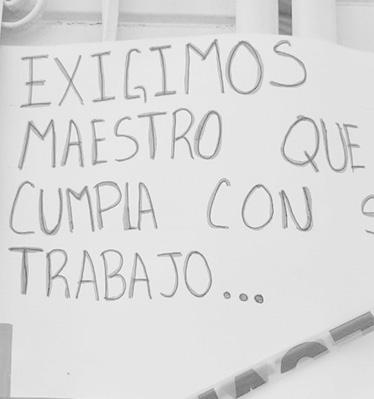 EXIGIMOS
MAESTRO QUE
CUMPLA CON S
TRABAJO...